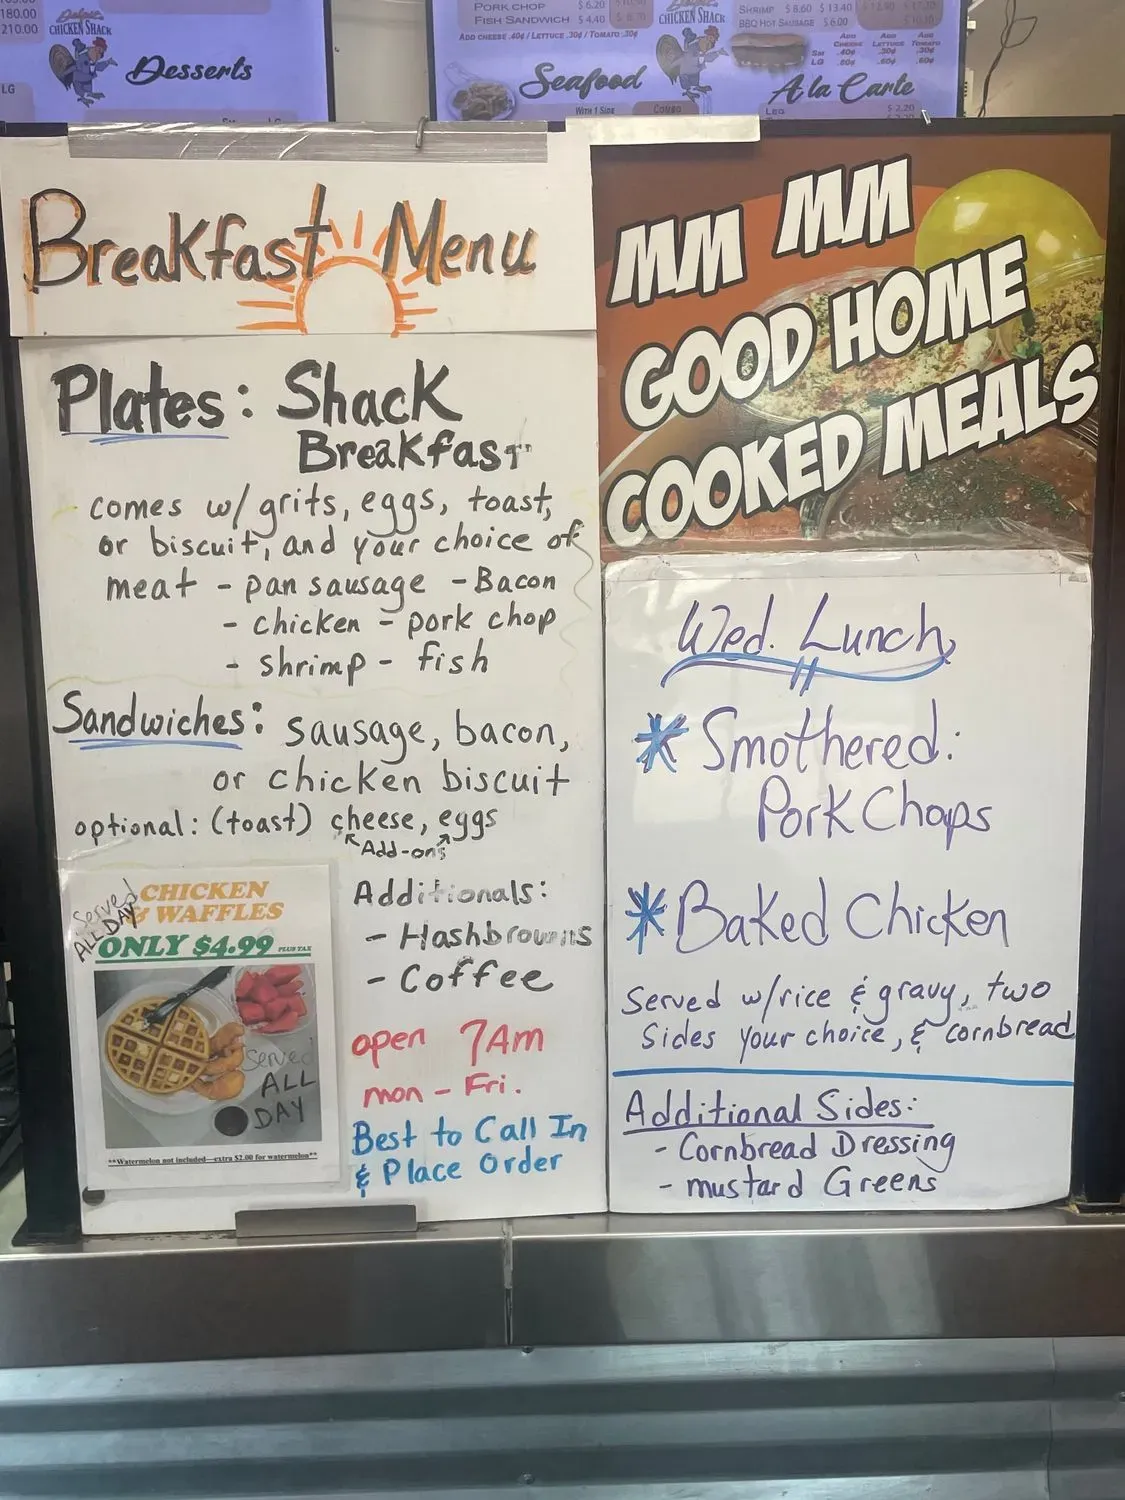 180.00
210.00
CHICKEN SHACK
Desserts
LG
PORK CHOP $ 6.20
FISH SANDWICH $ 4.40
ADD CHEESE .40¢ / LETTUCE .30¢ / TOMATO .30¢
CHICKEN SHACK
Seafood
WITH 1 SIDE
COMBO
SHRIMP $ 8.60 $ 13.40
BBQ HOT SAUSAGE $ 6.00
ADD CHEESE ADD LETTUCE ADD TOMATO
SM .40¢ .30¢ .30¢
LG .80¢ .60¢ .60¢
A la Carte
LEG $ 2.20
Breakfast Menu
Plates: Shack
Breakfast
comes w/ grits, eggs, toast,
or biscuit, and your choice of
meat - pan sausage - Bacon
- chicken - pork chop
- shrimp - fish
Sandwiches: sausage, bacon,
or chicken biscuit
optional: (toast) cheese, eggs
Add-ons
Served
ALL DAY
CHICKEN
& WAFFLES
ONLY $4.99 PLUS TAX
Served
ALL
DAY
**Watermelon not included—extra $2.00 for watermelon**
Additionals:
- Hashbrowns
- Coffee
open 7Am
mon - Fri.
Best to Call In
& Place Order
MM MM
GOOD HOME
COOKED MEALS
Wed. Lunch
* Smothered:
Pork Chops
* Baked Chicken
Served w/rice & gravy, two
Sides your choice, & cornbread
Additional Sides:
- Cornbread Dressing
- mustard Greens